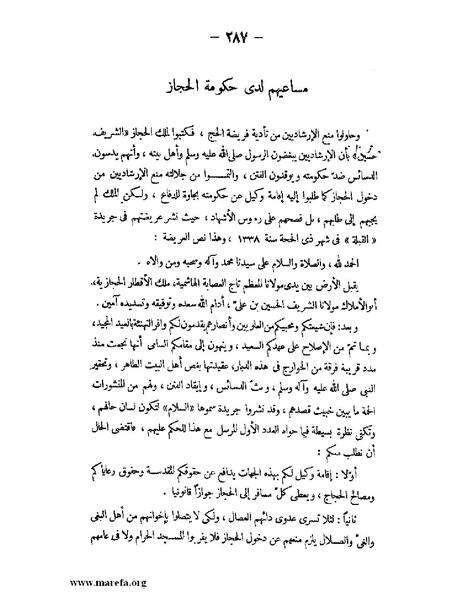 — ٢٨٧ —
مساعيهم لدى حكومة الحجاز
وحاولوا منع الإرشاديين من تأدية فريضة الحج ، فكتبوا لملك الحجاز «الشريف
حسين» بأن الإرشاديين يبغضون الرسول صلى الله عليه وسلم وأهل بيته ، وأنهم يدسون
الدسائس ضد حكومته ويوقدون الفتن ، والتمسوا من جلالته منع الإرشاديين من
دخول الحجاز كما طلبوا إليه إقامة وكيل عن حكومته بجاوة للدفاع ، ولكن الملك لم
يجبهم إلى طلبهم ، بل فضحهم على رءوس الأشهاد ، حيث نشر عريضتهم في جريدة
« القبلة » في شهر ذى الحجة سنة ١٣٣٨ ، وهذا نص العريضة :
الحمد لله ، والصلاة والسلام على سيدنا محمد وآله وصحبه ومن والاه .
يقبل الأرض بين يدى مولانا المعظم تاج العصابة الهاشمية ، ملك الأقطار الحجازية ،
أبو الأملاك مولانا الشريف الحسين بن على ، أدام الله سعده وتوفيقه وتسديده آمين .
وبعد : فإن شيعتكم ومحبيكم من العلويين وأنصارهم يقدمون لكم وافر التهنئة بالعيد المجيد ،
وبما تم من الإصلاح على عهدكم السعيد ، وينهون إلى مقامكم السامى أنها نجمت منذ
مدة قريبة فرقة من الخوارج في هذه الديار ، عقيدتها بغض أهل البيت الطاهر ، وتحقير
النبي صلى الله عليه وآله وسلم ، وبث الدسائس ، وإيقاد الفتن ، ولهم من المنشورات
الجمة ما يبين خبيث قصدهم ، وقد نشروا جريدة سموها «السلام» لتكون لسان حالهم ،
وتكفى نظرة بسيطة فيما حواه العدد الأول المرسل مع هذا للحكم عليهم ، فاقتضى الحال
أن نطلب منكم :
أولا : إقامة وكيل لكم بهذه الجهات يدافع عن حقوقكم المقدسة وحقوق رعاياكم
ومصالح الحجاج ، ويعطى كل مسافر إلى الحجاز جوازاً قانونيا .
ثانياً : لئلا تسرى عدوى دائهم العضال ، ولكى لا يتصلوا بإخوانهم من أهل البغى
والغى والضلال يلزم منعهم عن دخول الحجاز فلا يقربوا المسجد الحرام ولا فى عامهم
www.marefa.org